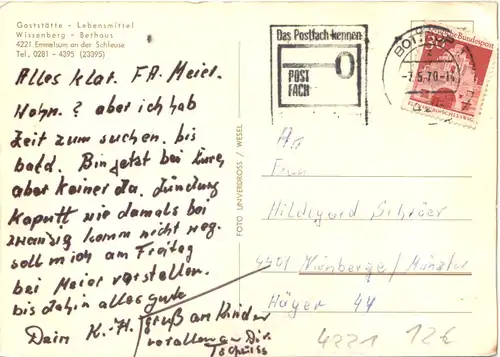 Gaststätte - Lebensmittel
Wissenberg - Bethaus
4221 Emmelsum an der Schleuse
Tel. 0281 - 4395 (23395)
Alles klar. FA. Meier.
Wohn.? aber ich hab
Zeit zum suchen. bis
bald. Bin jetzt bei Euch
aber keiner da. Zündung
Kaputt wie damals bei
komm nicht weg.
soll mich am Freitag
bei Meier vorstellen.
bis dahin alles gute
Dein K.-H. Gruß an Kinder
Tschüss
FOTO UNVERDROSS / WESEL
Das Postfach kennen
POST
FACH
-7.5.70-
Deutsche Bundespost
30
FLENSBURG/SCHLESWIG
An
Frau
Hildegard Schröer
4401 Nienberge/Münster
Häger 44
4221 12€